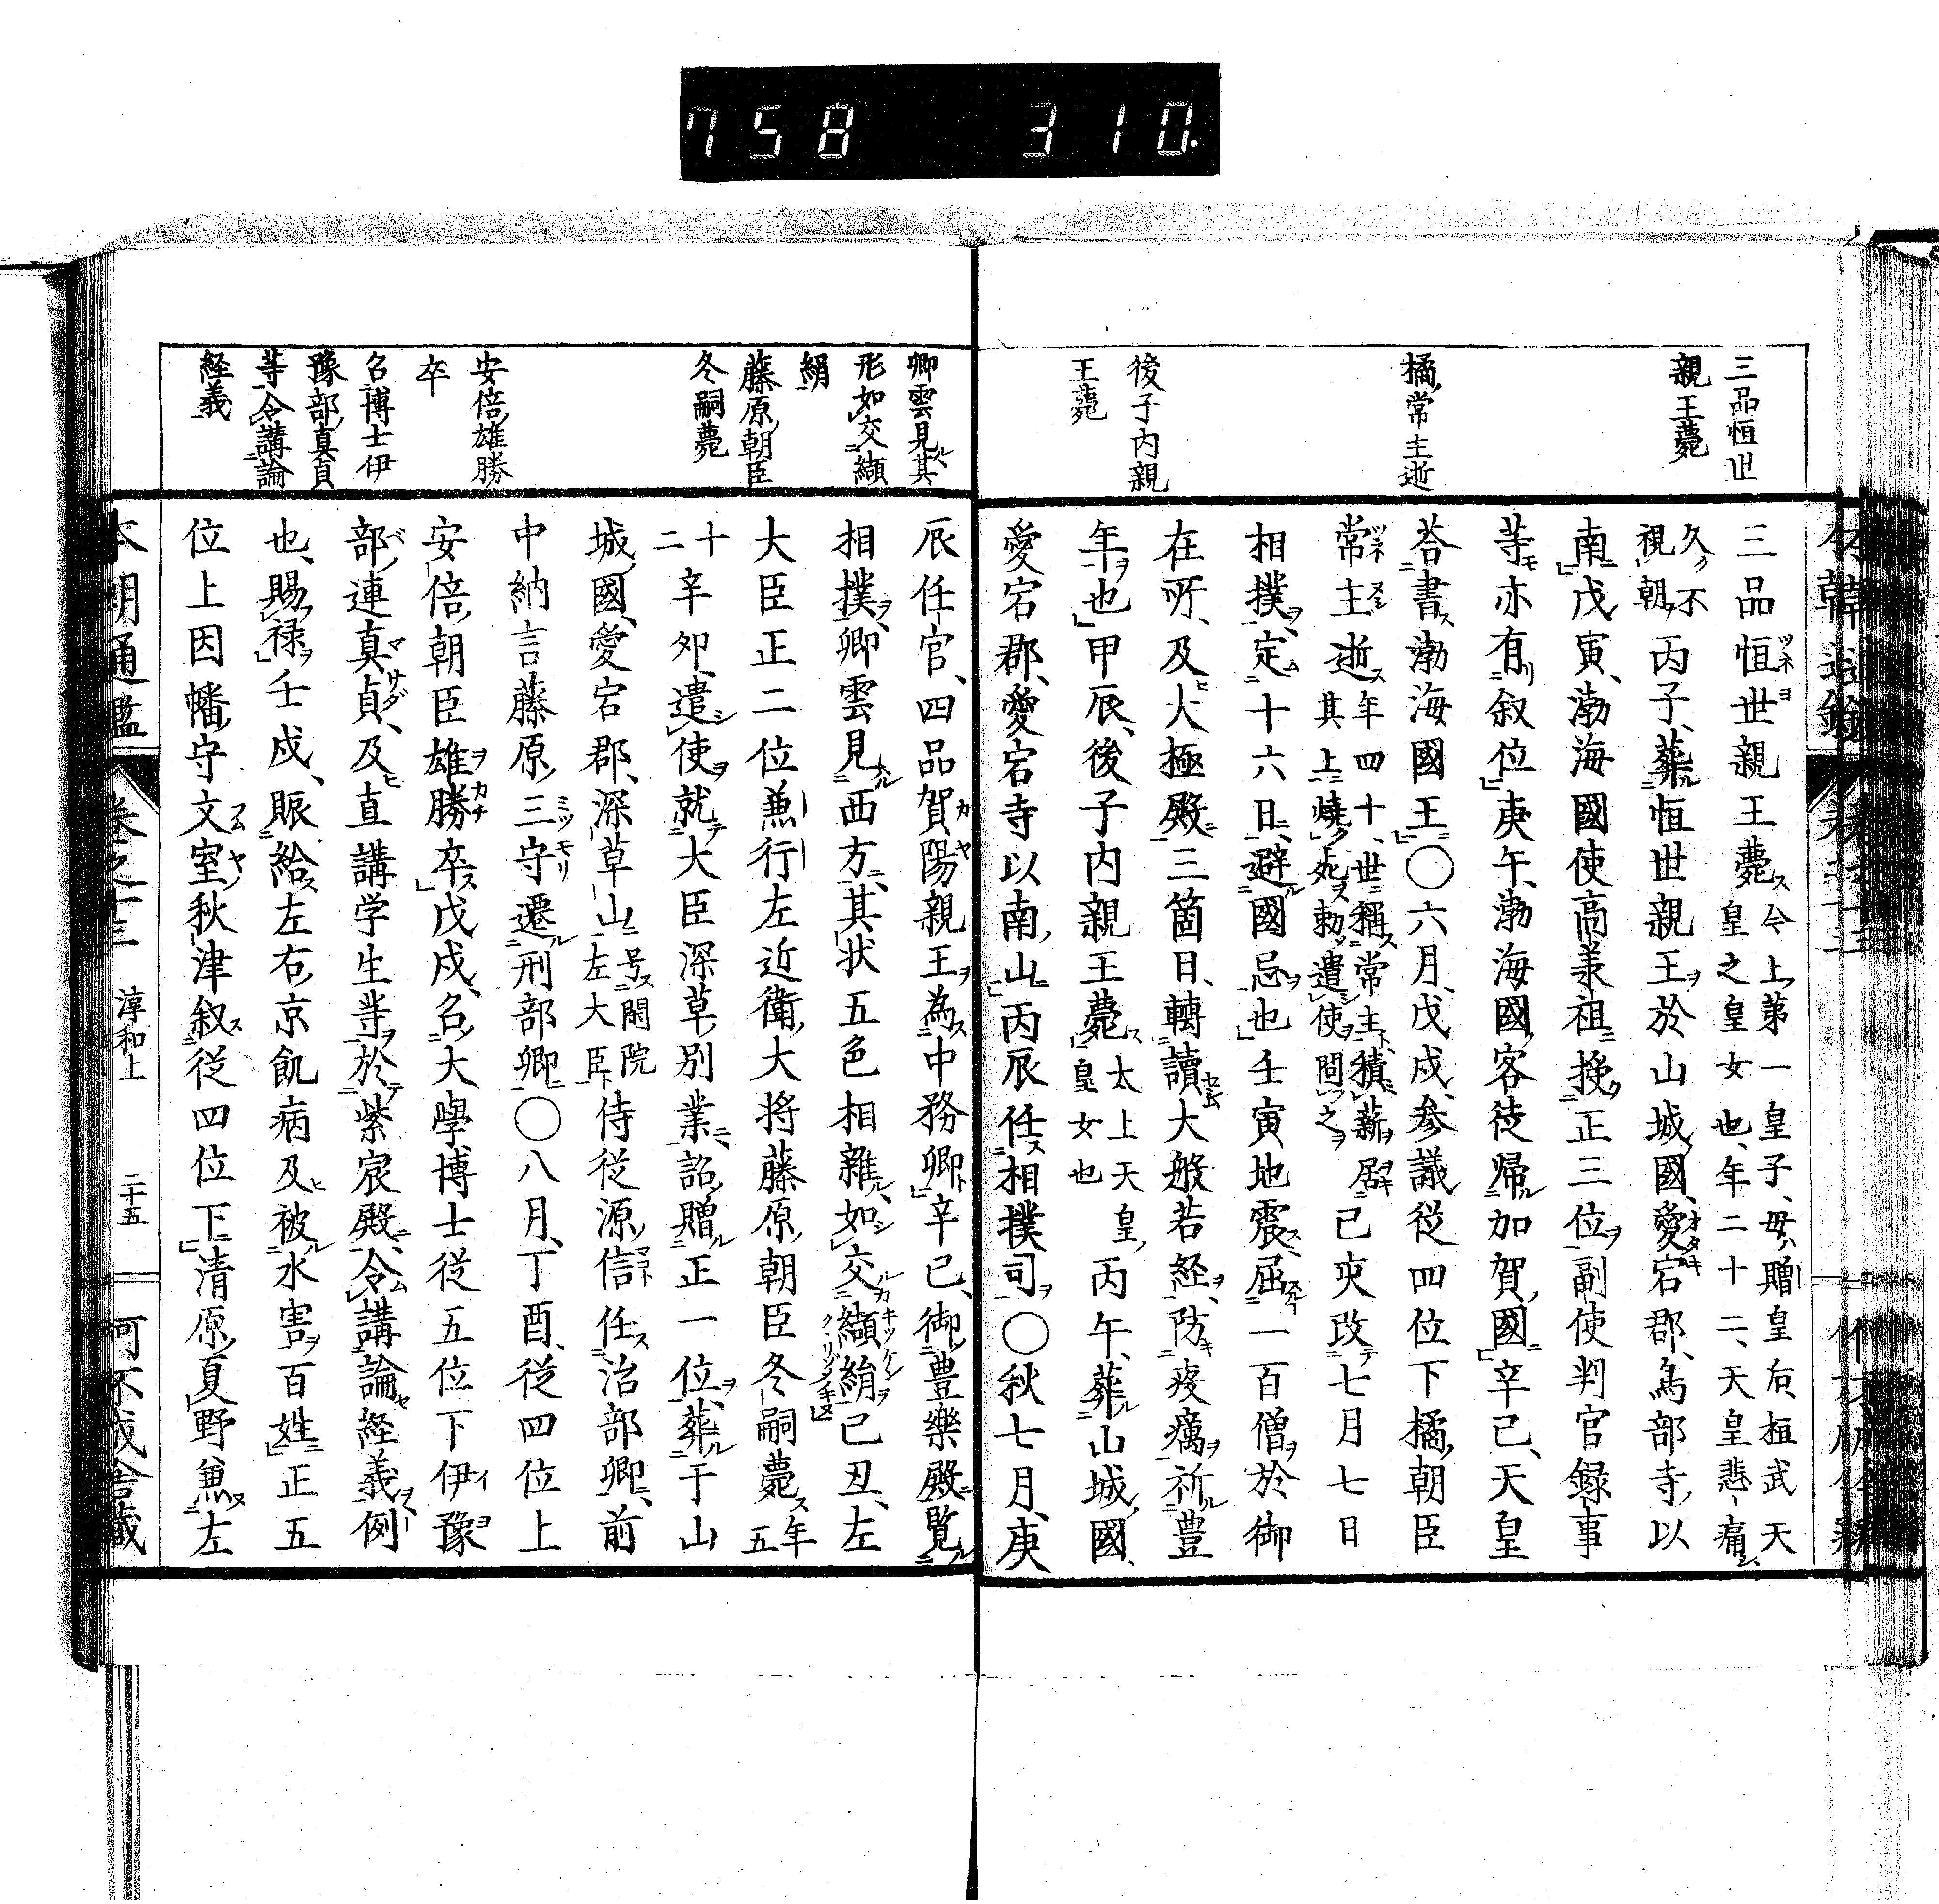 758 310.
三品恒世
親王薨
橘常主逝
後子内親
王薨
三品恒世親王薨今上第一皇子、母贈皇后、桓武天
皇之皇女也、年二十二、天皇悲痛、
久不
視朝丙子、葬恒世親王於山城國、愛宕郡、鳥部寺以
南戊寅、渤海國使高兼祖授正三位副使判官録事
等亦有叙位庚午、渤海國客徒帰加賀國辛巳、天皇
荅書渤海國王〇六月、戊戌、参議従四位下橘朝臣
常主逝年四十、世稱常主積薪居
其上焼死勅遣使問之己夾改七月七日
相撲定十六日、避國忌也壬寅地震屈一百僧於御
在所、及大極殿三箇日、轉讀大般若経、防疫癘祈豊
年也甲辰、後子内親王薨太上天皇
皇女也丙午、葬山城國、
愛宕郡、愛宕寺以南山丙辰任相撲司〇秋七月、庚
卿雲見其
形如交纈
絹
藤原朝臣
冬嗣薨
安倍雄勝
卒
召博士伊
豫部真貞
等令講論
経義
辰任官、四品賀陽親王為中務卿辛巳、御豊樂殿覧
相撲、卿雲見西方、其状五色相雜、如交纈絹己丑、左
大臣正二位兼行左近衛大将藤原朝臣冬嗣薨年五
十二辛夘、遣使就大臣深草別業、詔贈正一位、葬于山
城國、愛宕郡、深草山号閑院
左大臣侍従源信任治部卿、前
中納言藤原三守遷刑部卿〇八月、丁酉、従四位上
安倍朝臣雄勝卒戊戌、召大學博士従五位下伊豫
部連真貞、及直講学生等於紫宸殿、令講論経義例
也、賜禄壬戌、賑給左右京飢病及被水害百姓正五
位上因幡守文室秋津叙従四位下清原夏野兼左
本朝通鑑 巻之十三 淳和上 二十五